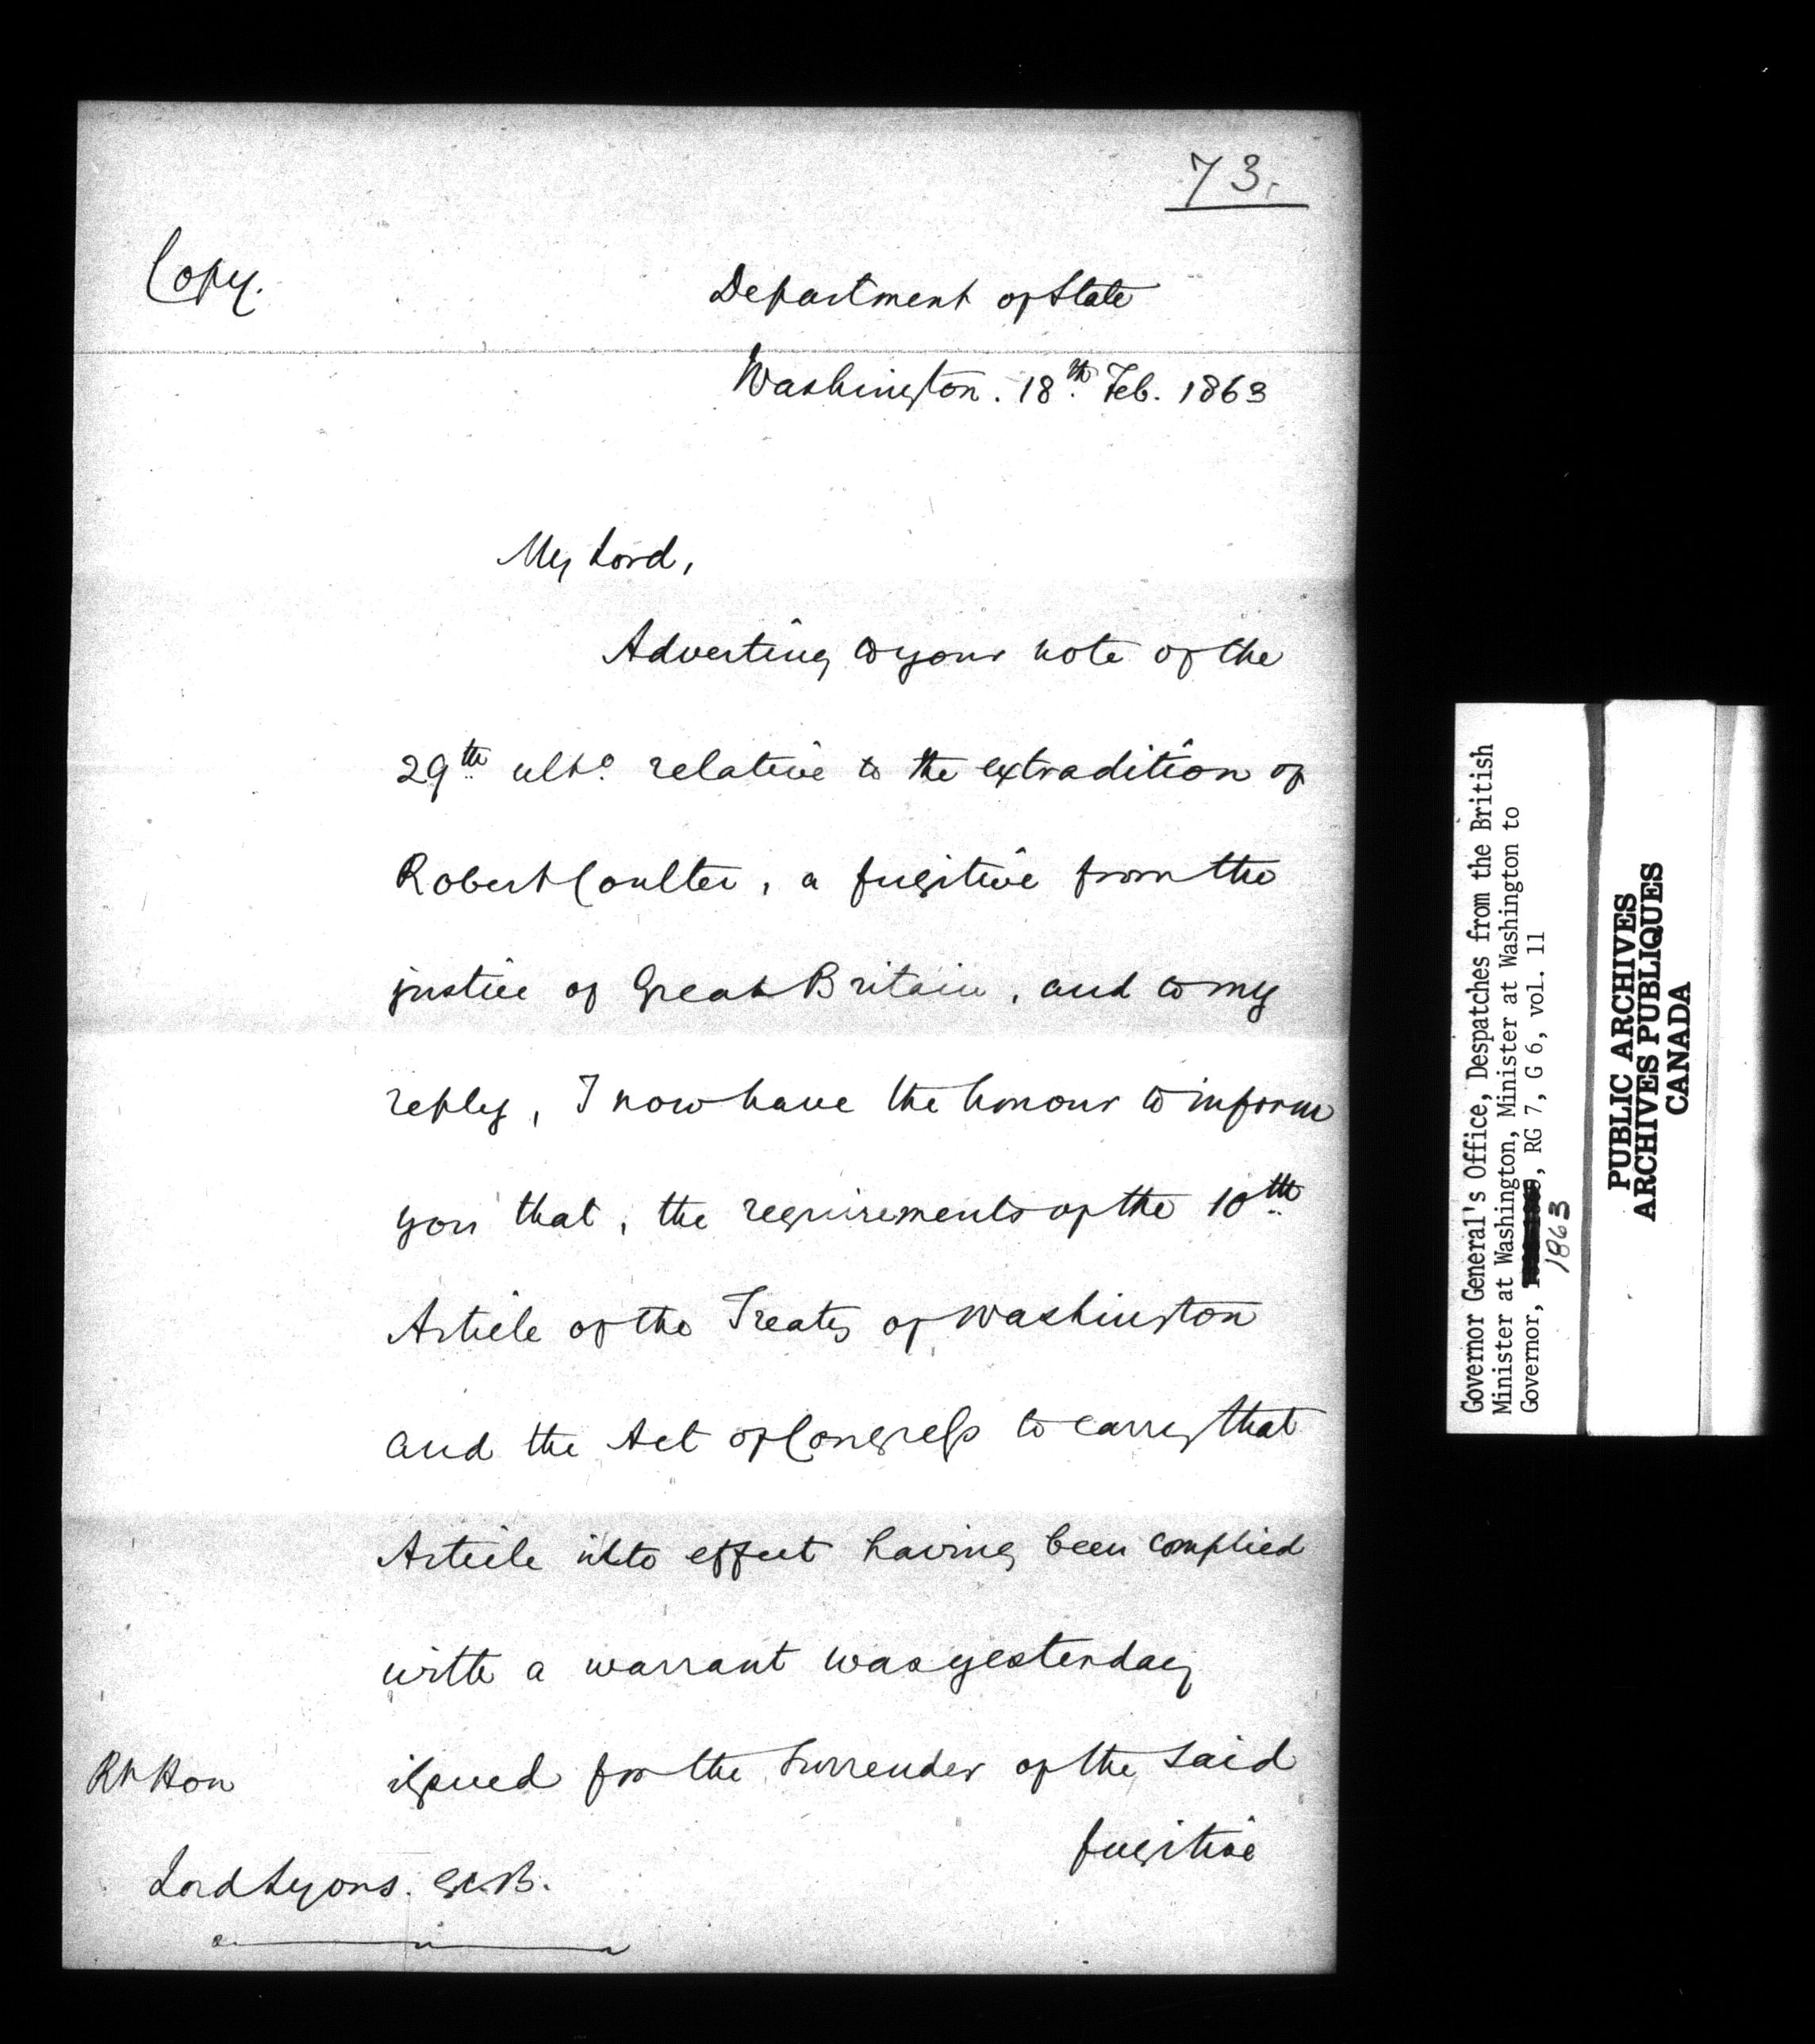 73.
Copy.
Department of State
Washington. 18th Feb. 1863
My Lord,
Adverting to your note of the
29th ulto. relative to the extradition of
Robert Coulter, a fugitive from the
justice of Great Britain, and to my
reply, I now have the honour to inform
you that, the requirements of the 10th
Article of the Treaty of Washington
and the Act of Congress to carry that
Article into effect having been complied
with a warrant was yesterday
issued for the surrender of the said
fugitive
Rt Hon
Lord Lyons. G.C.B.
Governor General's Office, Despatches from the British
Minister at Washington, Minister at Washington to
Governor, , RG 7, G 6, vol. 11
1863
PUBLIC ARCHIVES
ARCHIVES PUBLIQUES
CANADA